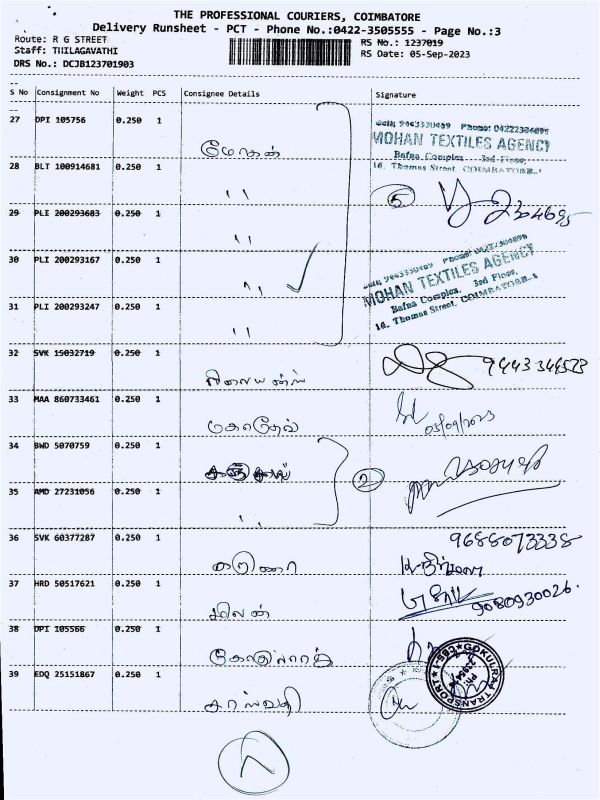 THE PROFESSIONAL COURIERS, COIMBATORE
Delivery Runsheet - PCT - Phone No.:0422-3505555 - Page No.:3
Route: R G STREET
RS No.: 1237019
Staff: THILAGAVATHI
RS Date: 05-Sep-2023
DRS No.: DCJB123701903
S No Consignment No Weight PCS Consignee Details Signature
27 DPI 105756 0.250 1 மோகன்
Cell: 9443330409 Phone: 04222304695
MOHAN TEXTILES AGENCY
Bafna Complex, 3rd Floor,
16, Thomas Street, COIMBATORE-1
28 BLT 100914681 0.250 1 ''
29 PLI 200293683 0.250 1 ''
5 2304695
30 PLI 200293167 0.250 1 ''
Cell: 9443330409 Phone: 04222304695
MOHAN TEXTILES AGENCY
Bafna Complex, 3rd Floor,
16, Thomas Street, COIMBATORE-1
31 PLI 200293247 0.250 1 ''
32 SVK 15032719 0.250 1
33 MAA 860733461 0.250 1 மகாதேவ்
34 BWD 5070759 0.250 1
2
35 AMD 27231056 0.250 1 ''
36 SVK 60377287 0.250 1
9688073338
37 HRD 50517621 0.250 1 மிலன்
9080930026.
38 DPI 105566 0.250 1
GOKULRAJ TRANSPORT
39 EDQ 25151867 0.250 1